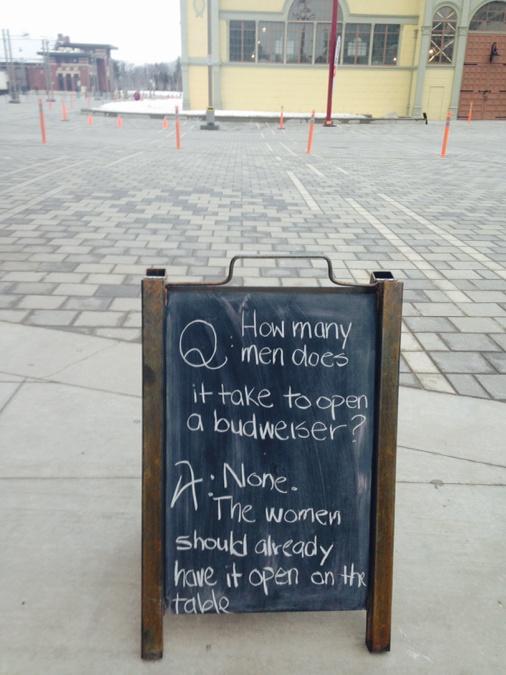 Q: How many
men does
it take to open
a budweiser?
A: None.
The women
should already
have it open on the
table